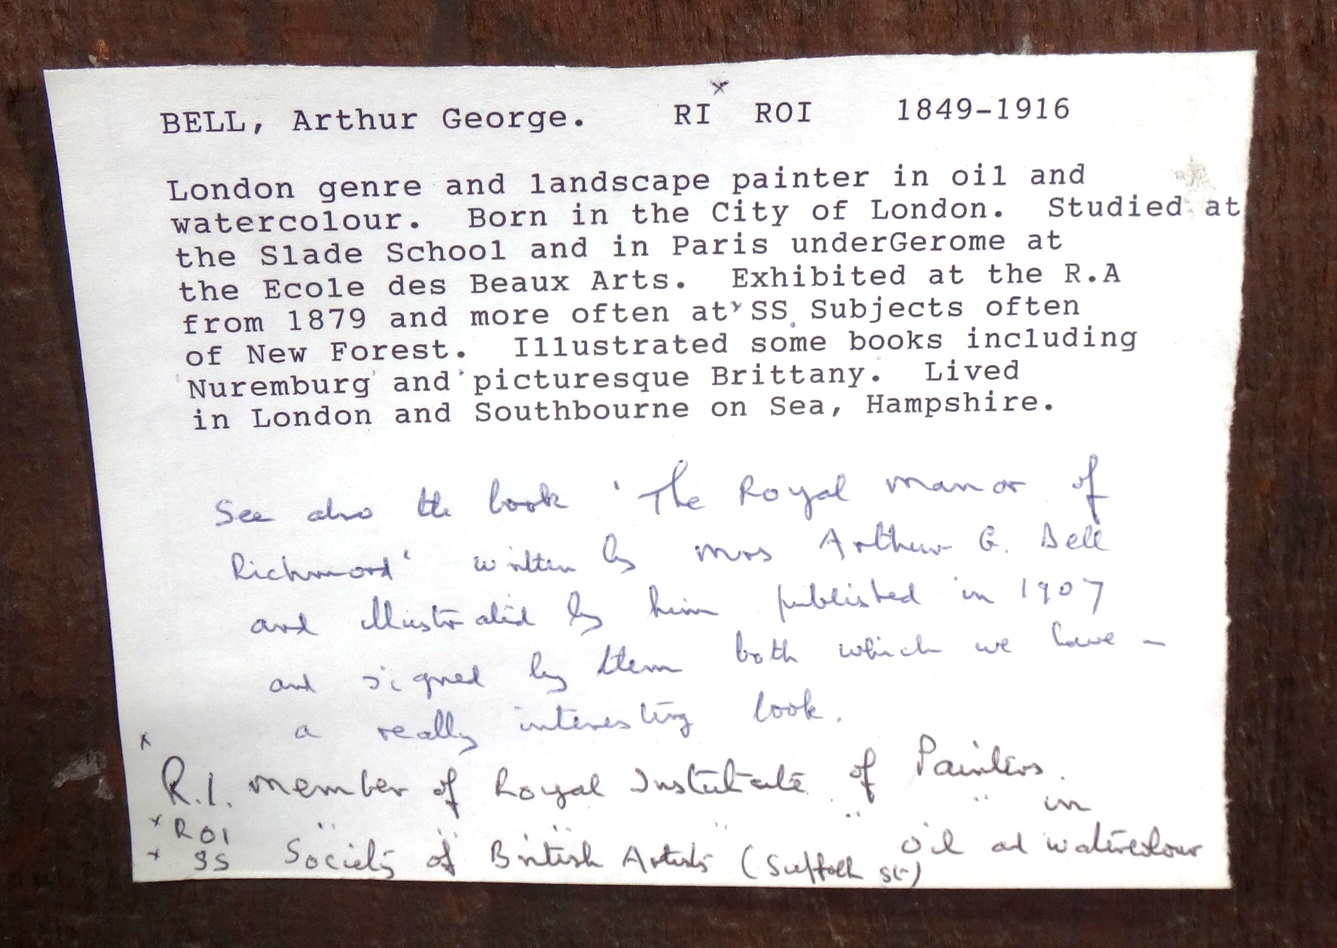 BELL, Arthur George. RI * ROI 1849-1916
London genre and landscape painter in oil and
watercolour. Born in the City of London. Studied at
the Slade School and in Paris underGerome at
the Ecole des Beaux Arts. Exhibited at the R.A
from 1879 and more often at * SS. Subjects often
of New Forest. Illustrated some books including
'Nuremburg' and 'picturesque Brittany. Lived
in London and Southbourne on Sea, Hampshire.
See also the book 'The Royal Manor of
Richmond' written by Mrs Arthur G. Bell
and illustrated by him published in 1907
and signed by them both which we have -
a really interesting book.
* R.I. member of Royal Institute of Painters.
* ROI " " " " " " in
oil ad watercolour
* SS Society of British Artists (Suffolk St)